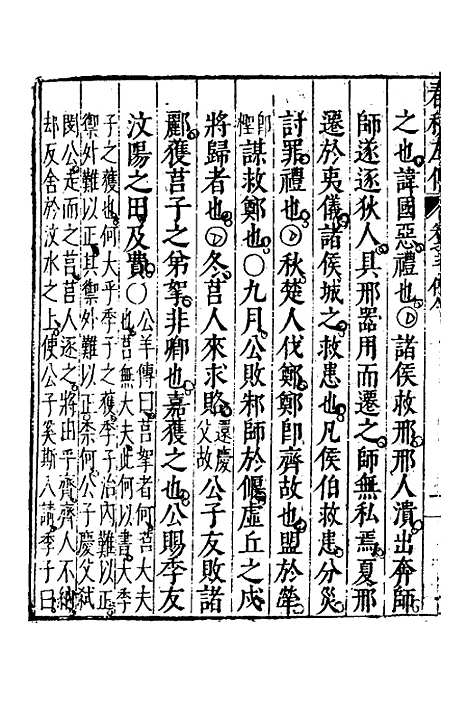 之也諱國惡禮也○諸侯救邢邢人潰出奔師
師遂逐狄人具邢器用而遷之師無私焉夏邢
遷於夷儀諸侯城之救患也凡侯伯救患分災
討罪禮也○秋楚人伐鄭鄭即齊故也盟於犖
即檉謀救鄭也○九月公敗邾師於偃虛丘之戍
將歸者也○冬莒人來求賂還慶父故公子友敗諸
酈獲莒子之弟挐非卿也嘉獲之也公賜季友
汶陽之田及費○公羊傳曰莒挐者何莒大夫也莒無大夫此何以書大季
子之獲也何大乎季子之獲季子治內難以正
禦外難以正其禦外難以正柰何公子慶父弒
閔公走而之莒莒人逐之將由乎齊齊人不納
却反舍於汶水之上使公子奚斯入請季子曰